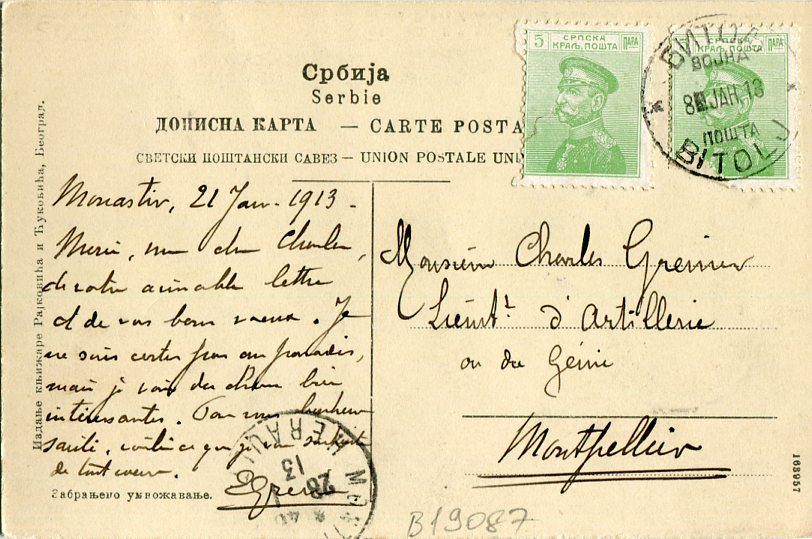 Србија
Serbie
ДОПИСНА КАРТА — CARTE POSTA
СВЕТСКИ ПОШТАНСКИ САВЕЗ — UNION POSTALE UNI
5 СРПСКА ПАРА
КРАЉ. ПОШТА
СРПСКА ПАРА
КРАЉ. ПОШТА
БИТОЉ
ВОЈНА
8 ЈАН. 13
ПОШТА
BITOLJ
Издање књижаре Рајковића и Ћуковића, Београд.
Monastir, 21 Janv. 1913.
Merci, mon cher Charles,
de votre aimable lettre
et de vos bons voeux. Je
ne suis certes pas au paradis,
mais je vois des choses bien
intéressantes. Pour vous bonheur
santé, voilà ce que je vous souhaite
de tout coeur.
EGrenier
Забрањено умножавање.
Monsieur Charles Grenier
Lieut.t d'Artillerie
ou du Génie
Montpellier
HERAULT
28
13
168957
B19087